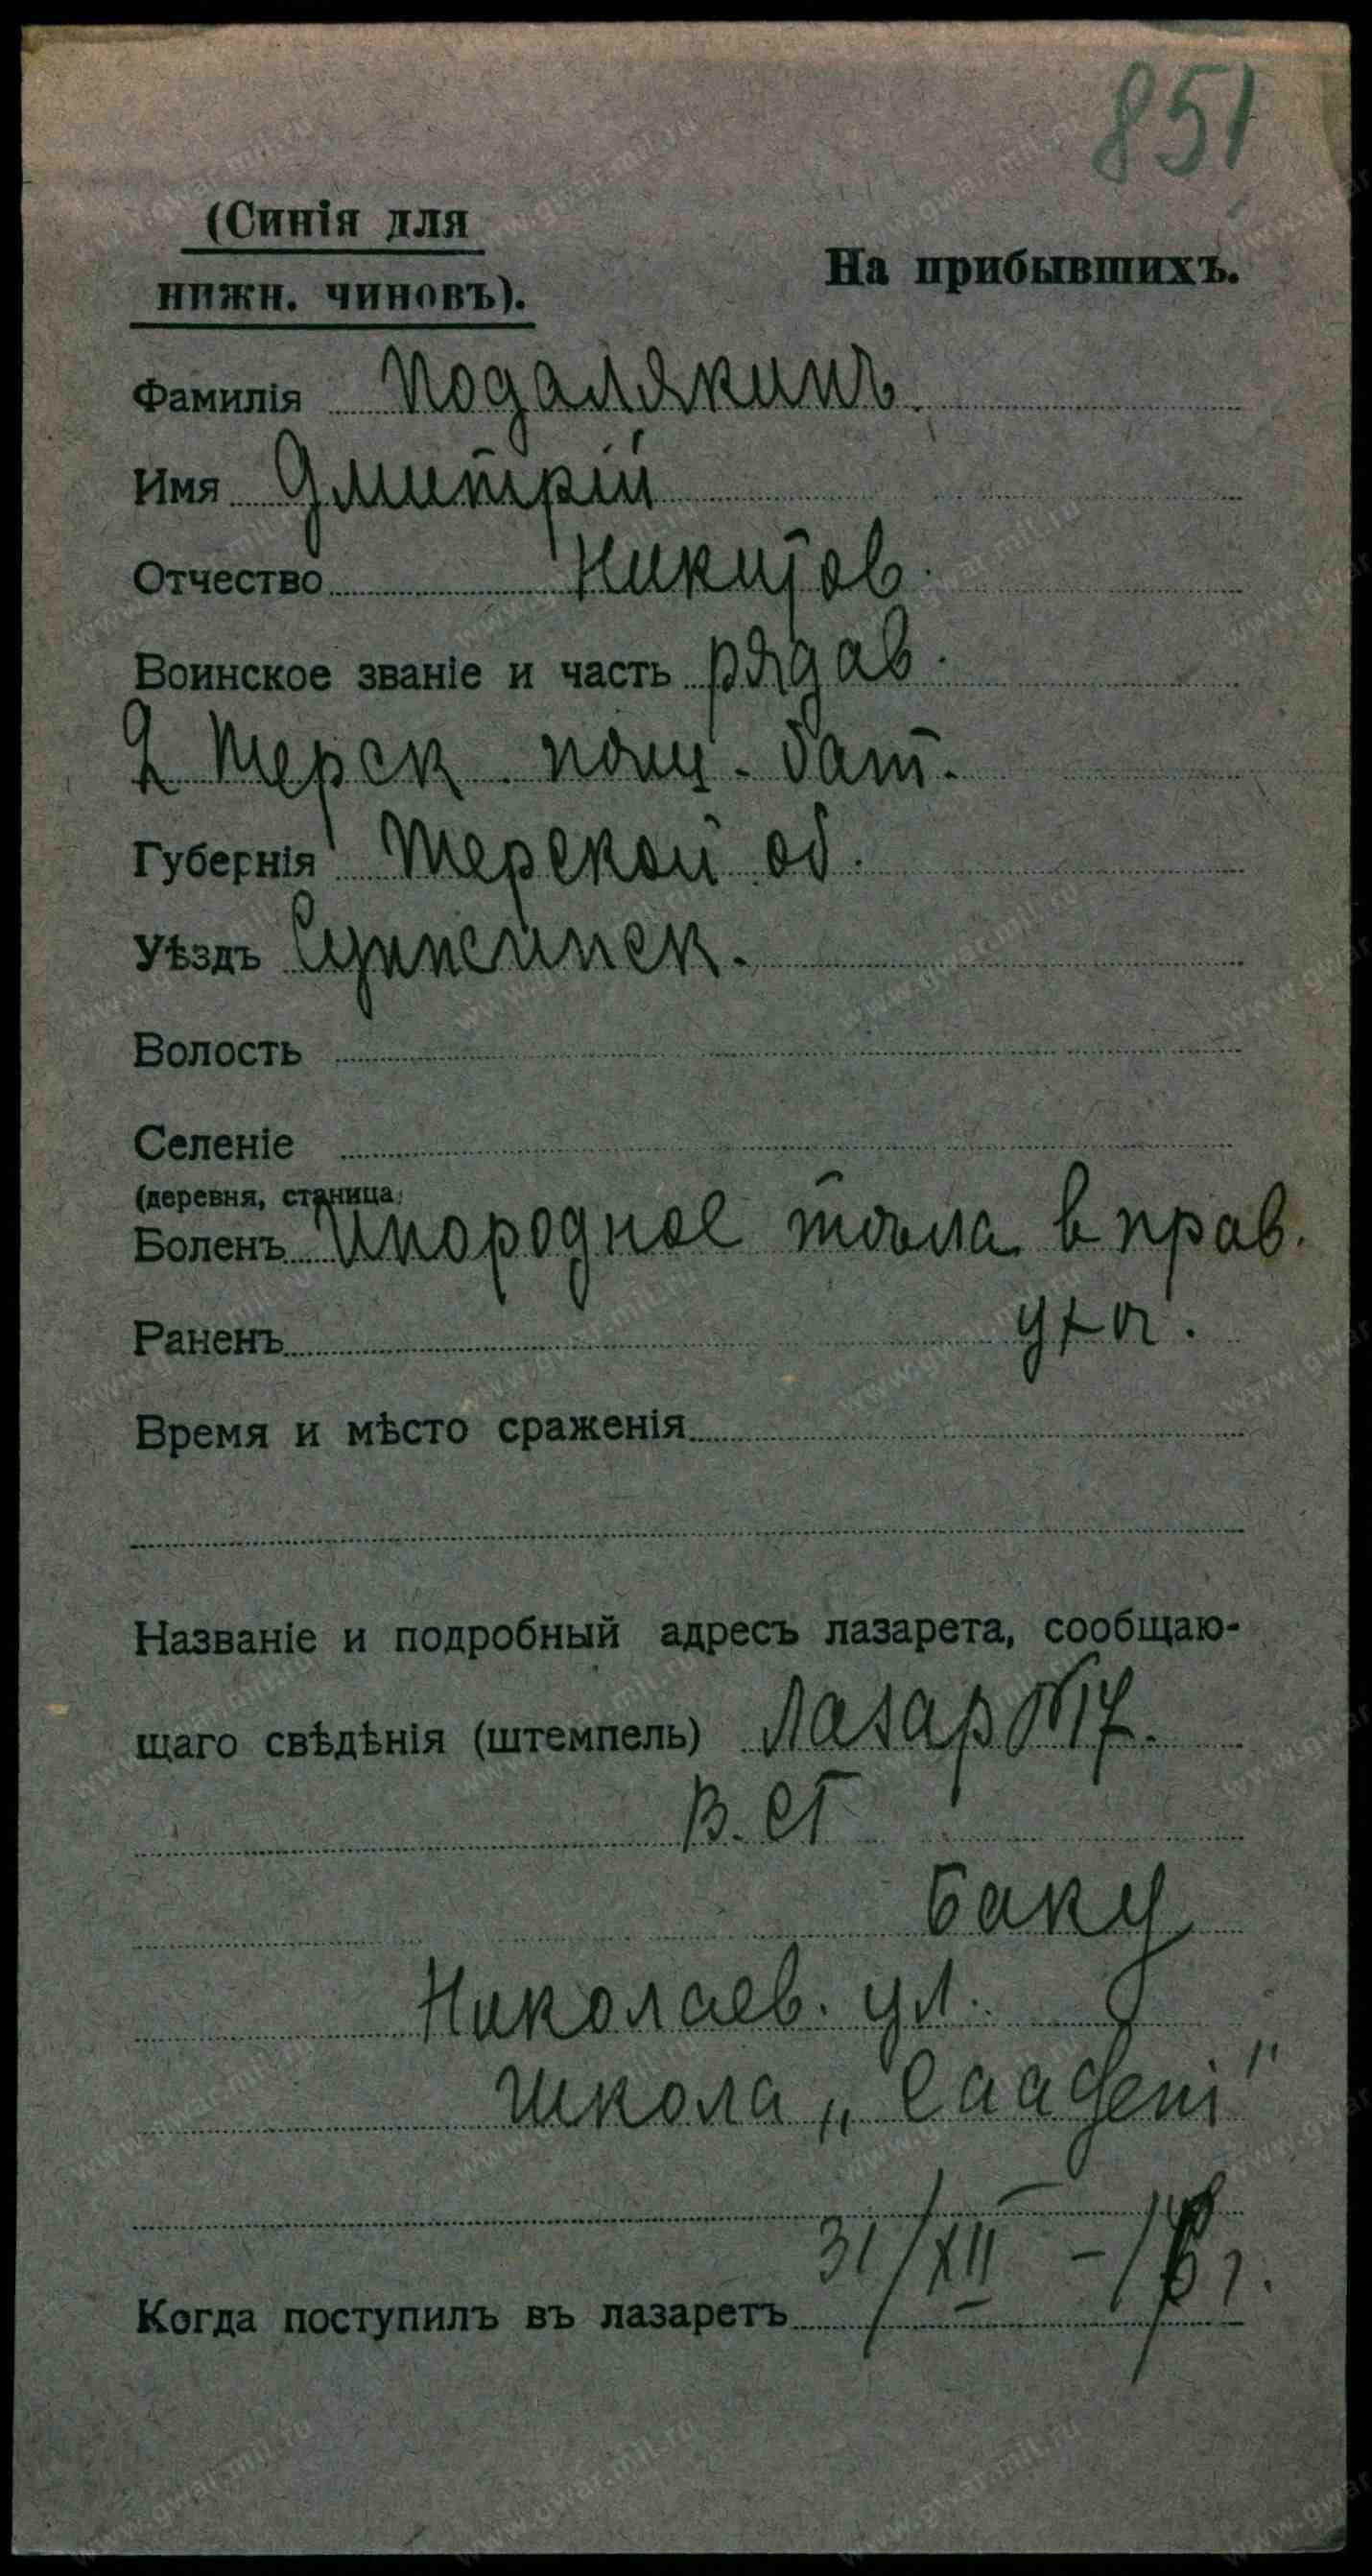 851
(Синія для
нижн. чиновъ).
На прибывшихъ.
Фамилія Подалякинъ.
Имя Дмитрій
Отчество Никитов.
Воинское званіе и часть рядов.
2 Терск. полц. бат.
Губернія Терской об.
Уѣздъ Сунженск.
Волость
Селеніе
(деревня, станица
Боленъ Инородное тѣла в прав.
Раненъ уха.
Время и мѣсто сраженія
Названіе и подробный адресъ лазарета, сообщаю-
щаго свѣдѣнія (штемпель) Лазар №17.
В. СГ
Баку
Николаев. ул.
Школа „Саадети"
31/XII - г.
Когда поступилъ въ лазаретъ
www.gwar.mil.ru